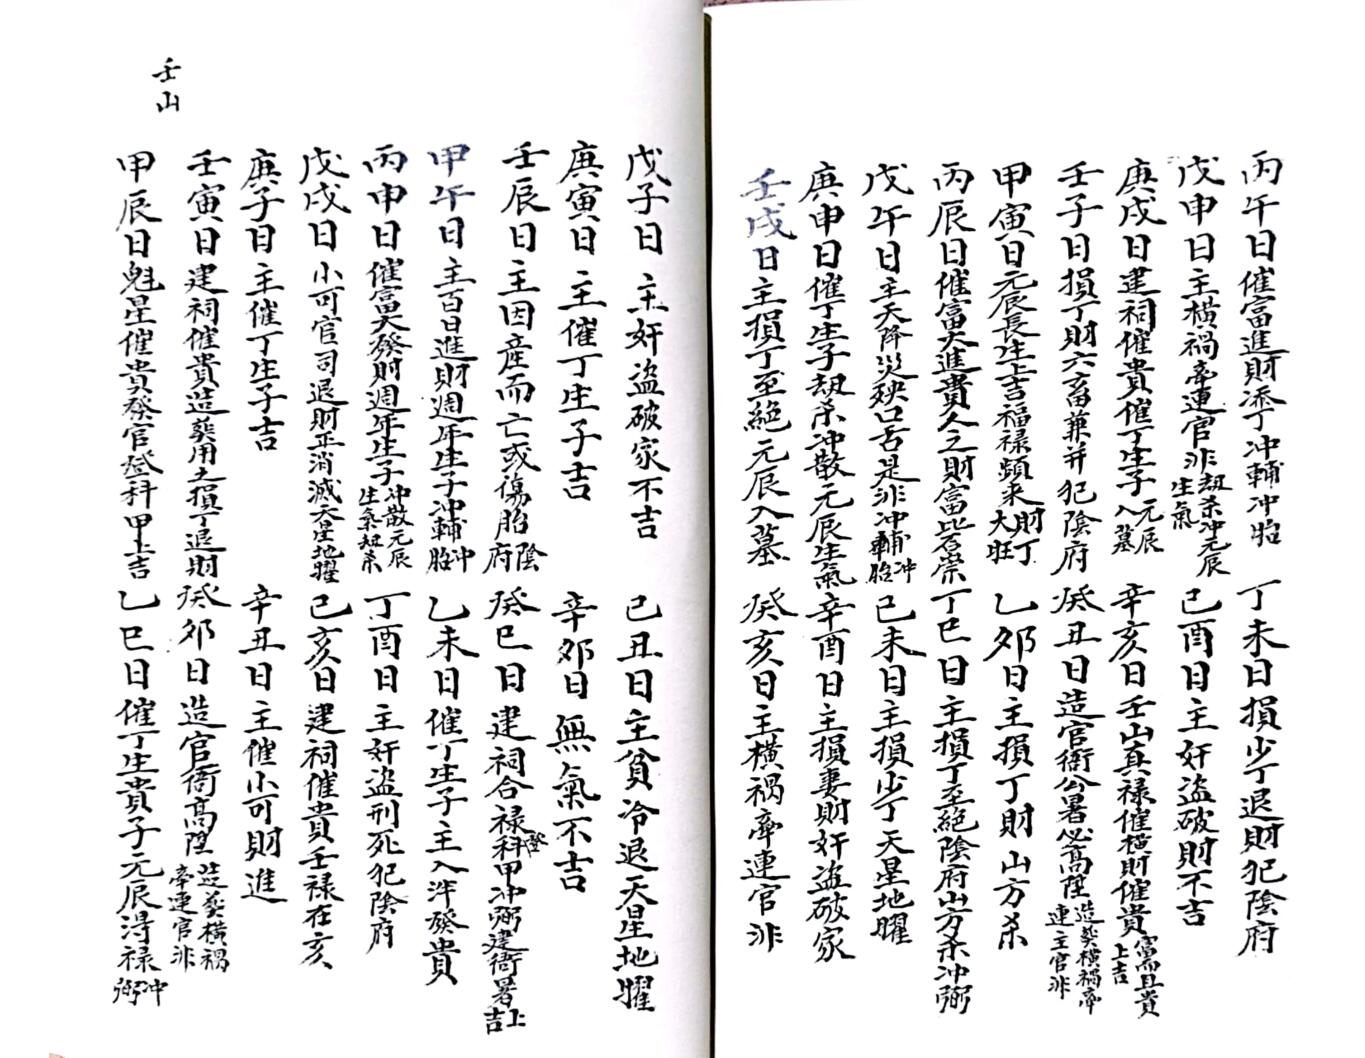 丙午日催富進財添丁沖輔沖胎　丁未日損少丁退財犯陰府
戊申日主橫禍牽連官非劫杀沖元辰生氣　己酉日主奸盜破財不吉
庚戌日建祠催貴催丁生子元辰入墓　辛亥日壬山真禄催橫財催貴富而且貴上吉
壬子日損丁財六畜兼并犯陰府　癸丑日造官衙公暑必高陞造葵橫禍牽連主官非
甲寅日元辰長生上吉福禄頻来財丁大旺　乙夘日主損丁財山方杀
丙辰日催富大進貴人之財富比石崇　丁巳日主損丁至絕陰府山方杀沖弼
戊午日主天降災殃口舌是非沖輔沖胎　己未日主損少丁天星地曜
庚申日催丁生子劫杀沖散元辰生氣　辛酉日主損妻財奸盜破家
壬戌日主損丁至絕元辰入墓　癸亥日主橫禍牽連官非
戊子日主奸盜破家不吉　己丑日主貧冷退天星地曜
庚寅日主催丁生子吉　辛夘日無氣不吉
壬辰日主因産而亡或傷胎陰府　癸巳日建祠合禄登科甲沖弼建衙署上吉
甲午日主百日進財週年生子沖輔沖胎　乙未日催丁生子主入泮發貴
丙申日催富大發財週年生子沖散元辰生氣劫杀　丁酉日主奸盜刑死犯陰府
戊戌日小可官司退財正消滅天星地曜　己亥日建祠催貴壬禄在亥
庚子日主催丁生子吉　辛丑日主催小可財進
壬寅日建祠催貴造葵用之損丁退財　癸夘日造官衙高陞造葵橫禍牽連官非
甲辰日魁星催貴發官登科甲上吉　乙巳日催丁生貴子元辰淂禄沖弼
壬山